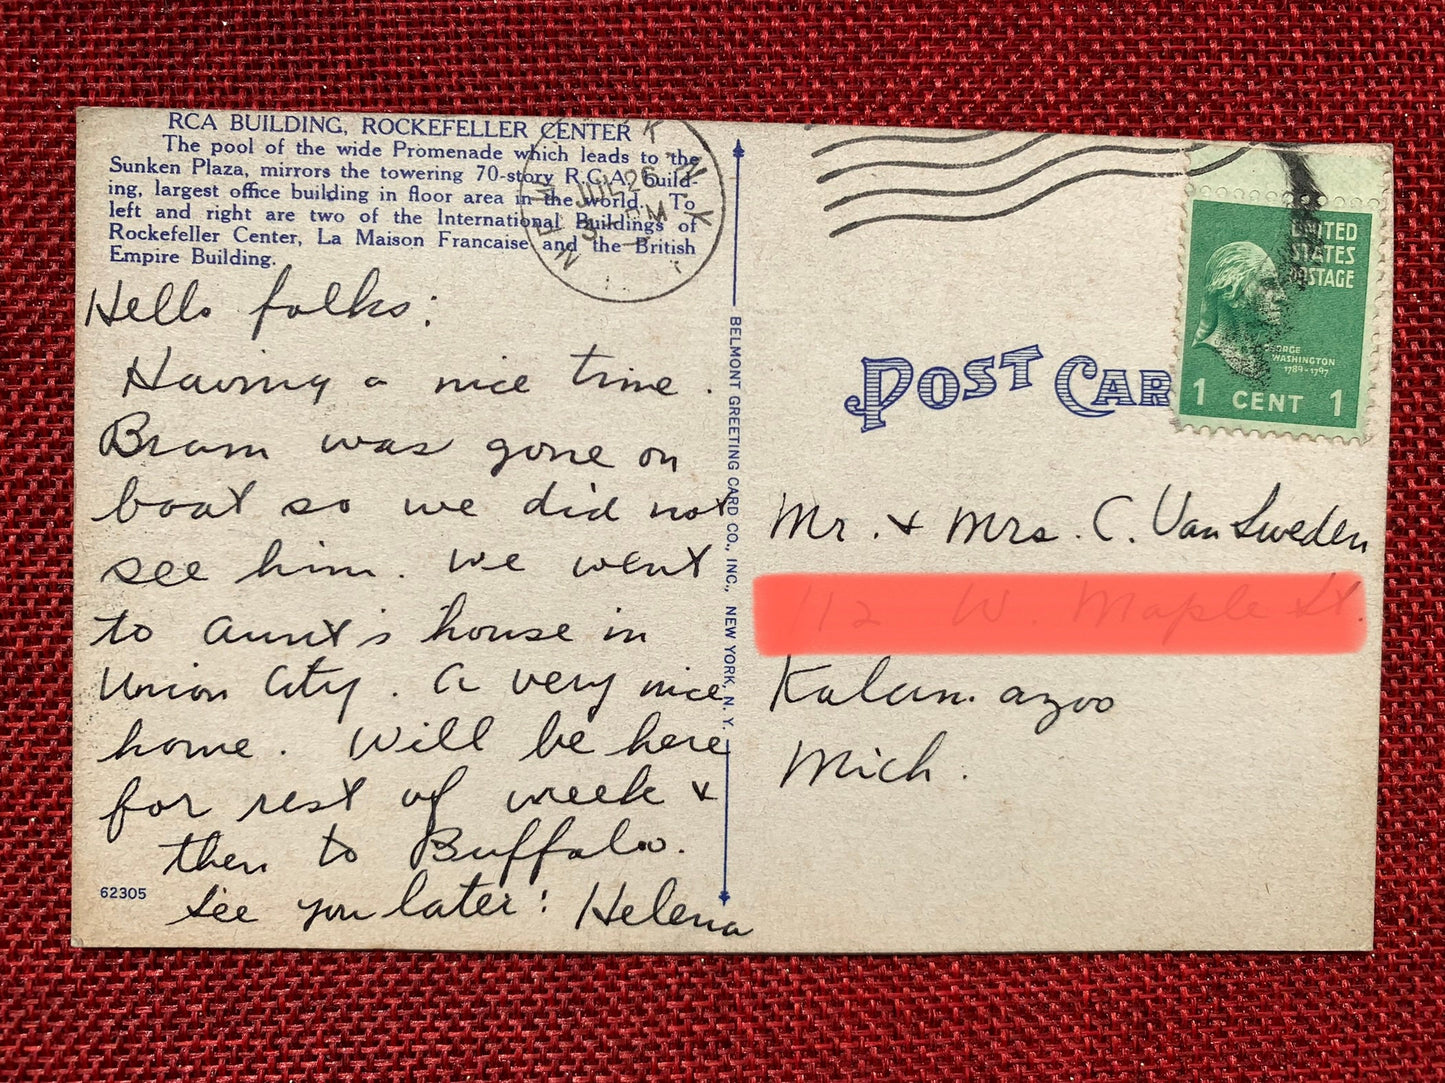 RCA BUILDING, ROCKEFELLER CENTER
The pool of the wide Promenade which leads to the
Sunken Plaza, mirrors the towering 70-story R.C.A. build-
ing, largest office building in floor area in the world. To
left and right are two of the International Buildings of
Rockefeller Center, La Maison Francaise and the British
Empire Building.
JUL 26
PM
Hello folks:
Having a nice time.
Bram was gone on
boat so we did not
see him. We went
to aunt's house in
Union City. A very nice
home. Will be here
for rest of week +
then to Buffalo.
See you later: Helena
62305
BELMONT GREETING CARD CO., INC., NEW YORK, N. Y.
UNITED
STATES
POSTAGE
GEORGE
WASHINGTON
1789-1797
1 CENT 1
POST CAR
Mr. + Mrs. C. Van Sweden
Kalamazoo
Mich.